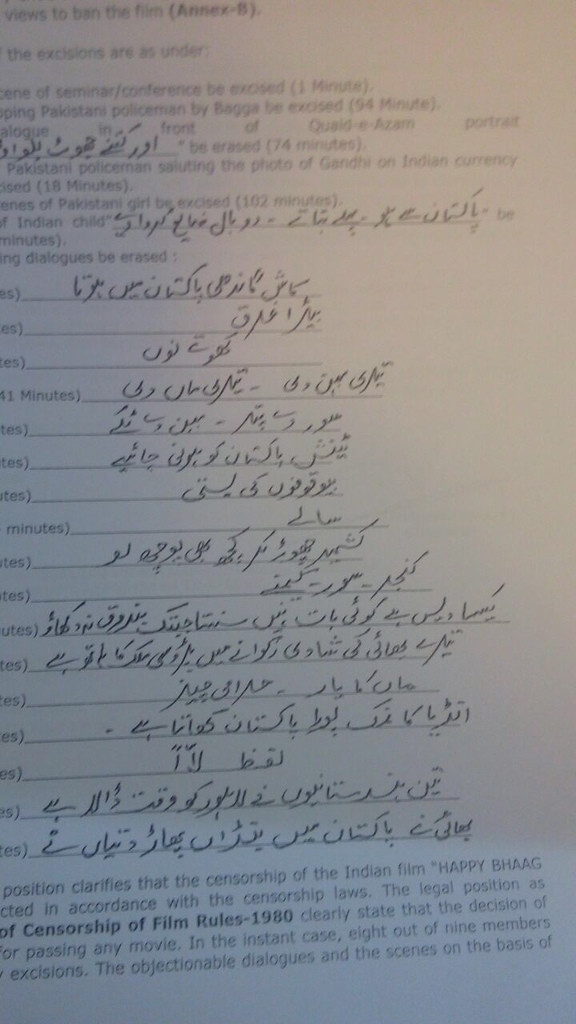 views to ban the film (Annex-B).
the excisions are as under:
cene of seminar/conference be excised (1 Minute).
pping Pakistani policeman by Bagga be excised (94 Minute).
alogue in front of Quaid-e-Azam portrait
اور کتنے جھوٹ " be erased (74 minutes).
Pakistani policeman saluting the photo of Gandhi on Indian currency
ised (18 Minutes).
enes of Pakistani girl be excised (102 minutes).
of Indian child "پاکستان سے ہو - پہلے بتاتے - دو بال ضائع کروا دیے - be
minutes).
ing dialogues be erased :
es) کاش گاندھی پاکستان میں ہوتا
es) بیڑا غرق
tes) کھوتے نوں
41 Minutes) تیری بہن دی - تیری ماں دی
tes) سور دے پتر - بہن دے
utes) ٹینشن پاکستان کو ہونی چاہیے
utes) بیوقوفوں کی بستی
minutes) سالے
utes) کشمیر چھوڑ کر کچھ بھی پوچھ لو
utes) کنجر - سور - کمینے
utes) کیسا دیس ہے کوئی بات نہیں سنتا جبتک بندوق نہ دکھاؤ
tes) تیرے بھائی کی شادی رکوانے میں پڑوسی ملک کا ہاتھ ہے
es) ماں کا یار - حرامی چیز
es) انڈیا کا نمک پورا پاکستان کھاتا ہے -
es) لفظ
es) تین ہندستانیوں نے لاہور کو وقت ڈالا ہے
tes) بھائی نے پاکستان میں
position clarifies that the censorship of the Indian film "HAPPY BHAAG
cted in accordance with the censorship laws. The legal position as
of Censorship of Film Rules-1980 clearly state that the decision of
for passing any movie. In the instant case, eight out of nine members
excisions. The objectionable dialogues and the scenes on the basis of